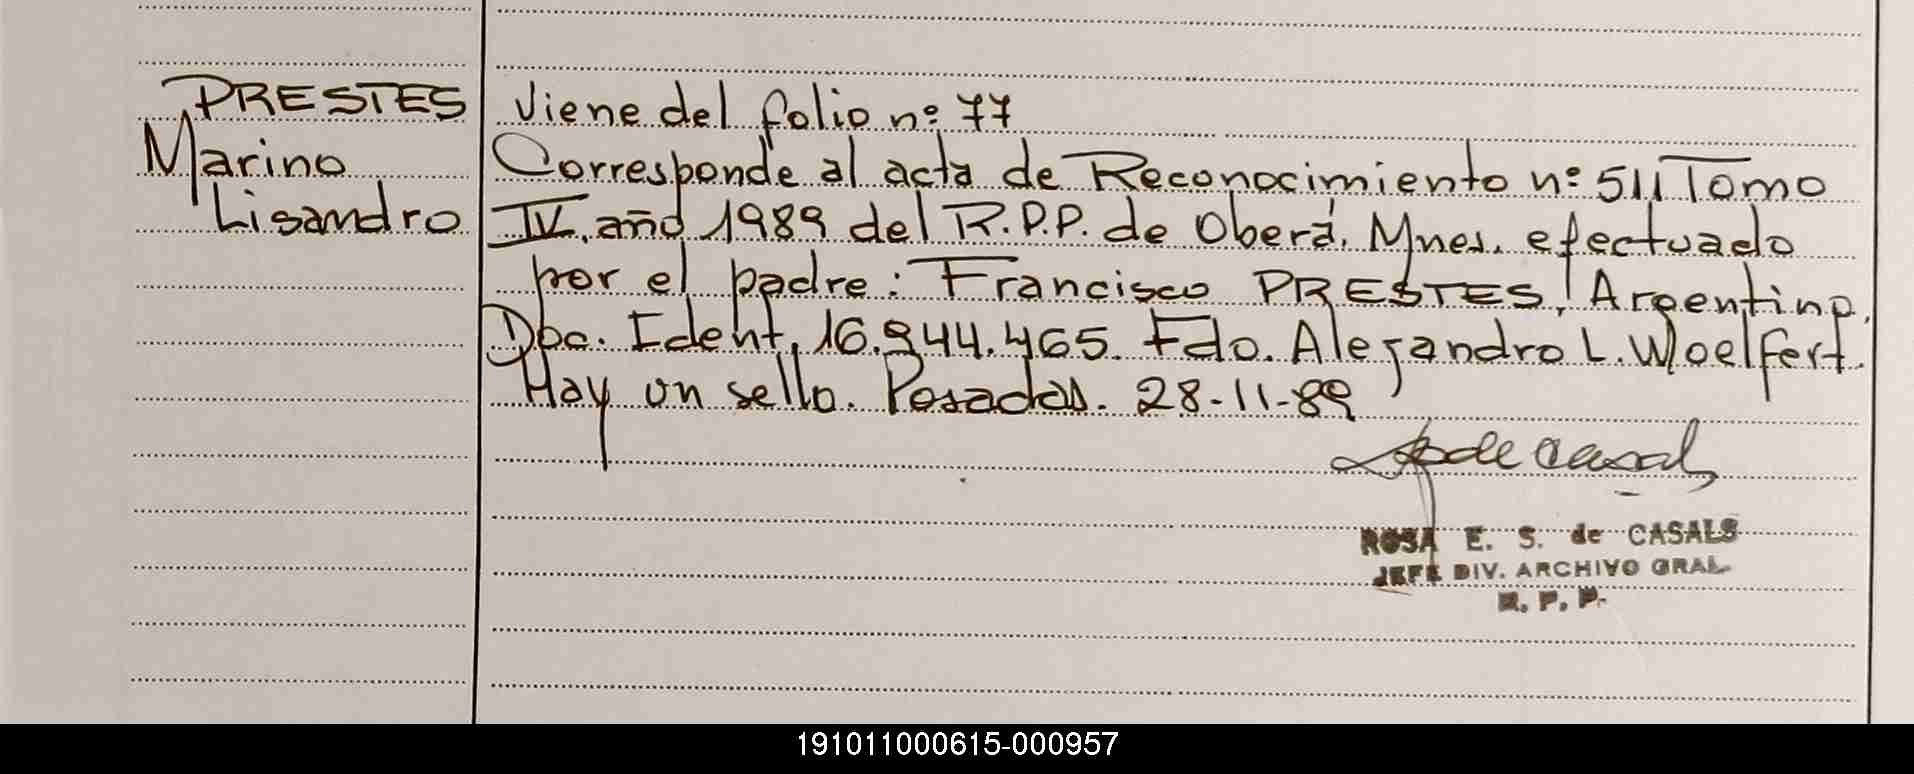 PRESTES
Marino
Lisandro
Viene del folio nº 77
Corresponde al acta de Reconocimiento nº 511 Tomo
IV. año 1989 del R.P.P. de Oberá. Mnes. efectuado
por el padre: Francisco PRESTES, Argentino,
Doc. Ident. 16.944.465. Fdo. Alejandro L. Woelfert.
Hay un sello. Posadas. 28-11-89
de Casals
ROSA E. S. de CASALS
JEFE DIV. ARCHIVO GRAL
R. P. P.
191011000615-000957